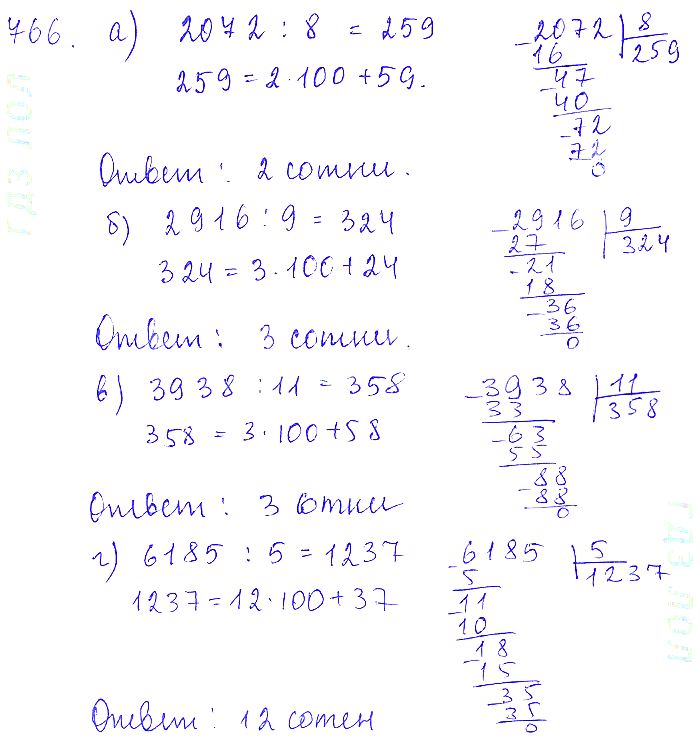 766. а) 2072 : 8 = 259
259 = 2·100 + 59.
-2072 | 8
16 259
-47
40
-72
72
0
Ответ: 2 сотни.
б) 2916 : 9 = 324
324 = 3·100 + 24
-2916 | 9
27 324
-21
18
-36
36
0
Ответ: 3 сотни.
в) 3938 : 11 = 358
358 = 3·100 + 58
-3938 | 11
33 358
-63
55
-88
88
0
Ответ: 3 сотни
г) 6185 : 5 = 1237
1237 = 12·100 + 37
-6185 | 5
5 1237
-11
10
-18
15
-35
35
0
Ответ: 12 сотен
гдз пол
гдз пол